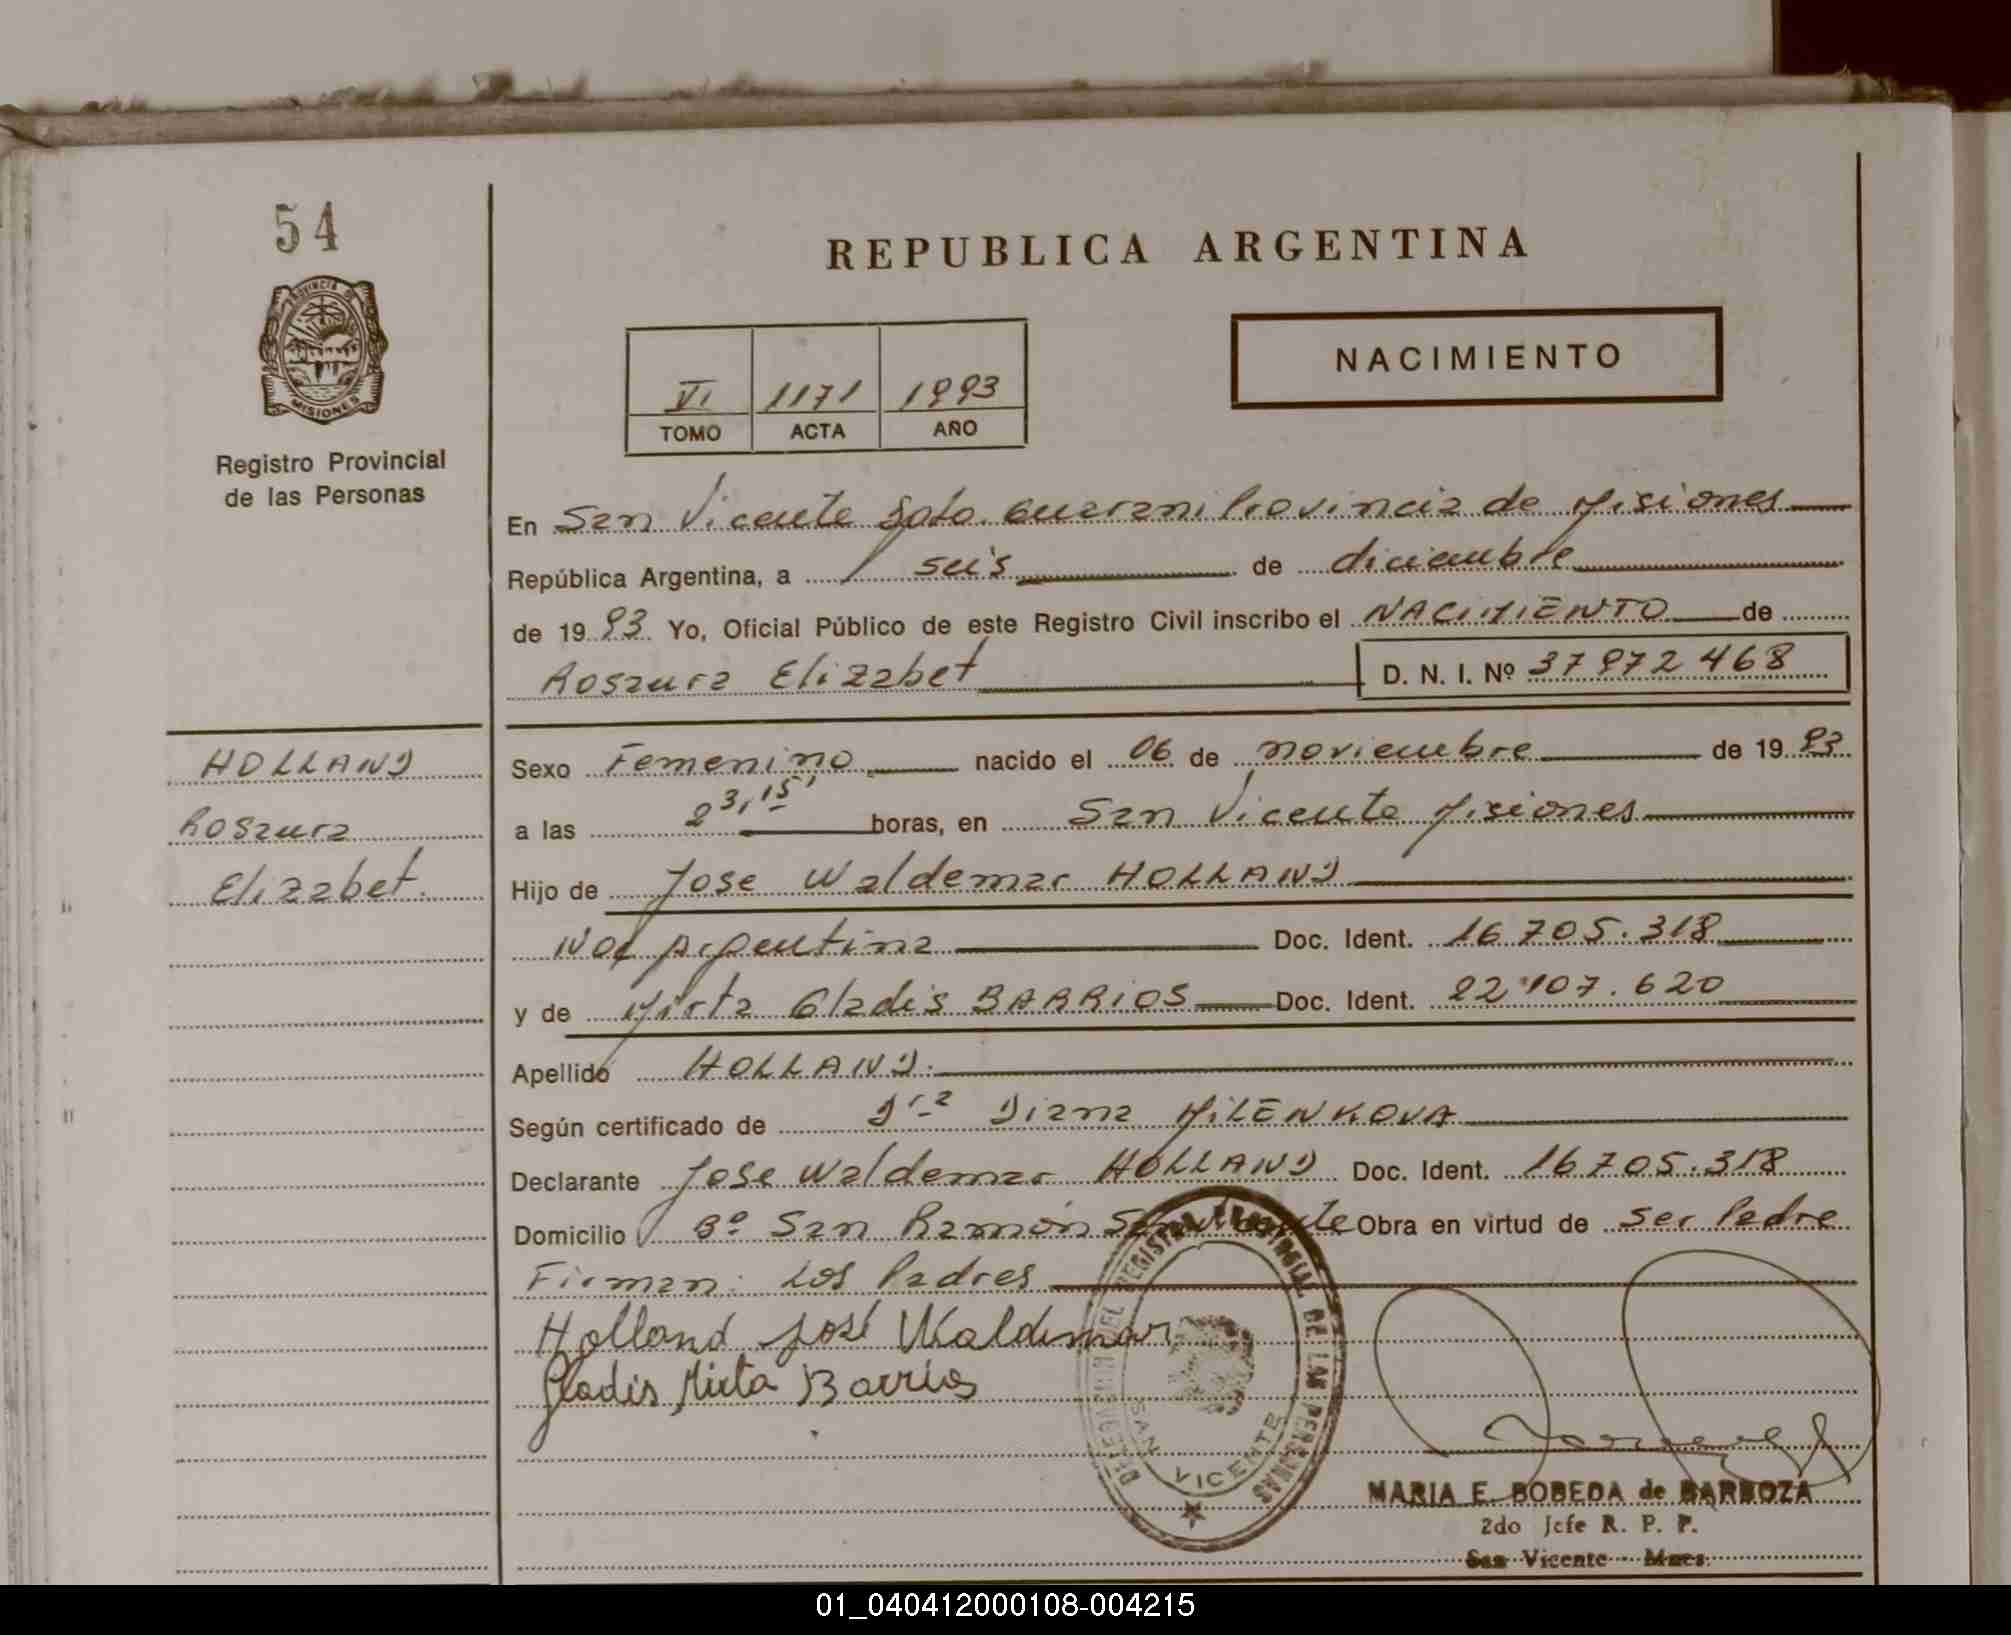 54
REPUBLICA ARGENTINA
PROVINCIA DE
MISIONES
NACIMIENTO
VI 1171 1993
TOMO ACTA AÑO
Registro Provincial
de las Personas
En San Vicente Gpto. Guarani Provincia de Misiones
República Argentina, a seis de diciembre
de 1993 Yo, Oficial Público de este Registro Civil inscribo el NACIMIENTO de
Rosaura Elizabet D. N. I. Nº 37972468
HOLLAND
Rosaura
Elizabet.
Sexo Femenino nacido el 06 de noviembre de 1993
a las 23,15' horas, en San Vicente Misiones
Hijo de Jose Waldemar HOLLAND
Nac Argentina Doc. Ident. 16.705.318
y de Mirta Gladis BARRIOS Doc. Ident. 22.107.620
Apellido HOLLAND.
Según certificado de Dra Diana MILENKOVA
Declarante Jose Waldemar HOLLAND Doc. Ident. 16.705.318
Domicilio Bº San Ramón San Vicente Obra en virtud de ser Padre
Firman: Los Padres
Holland José Waldemar
Gladis Mirta Barrios
DELEGACION DEL REGISTRO PROVINCIAL DE LAS PERSONAS
SAN VICENTE
MARIA E. BOBEDA de BARBOZA
2do Jefe R. P. P.
San Vicente Mnes.
01_040412000108-004215